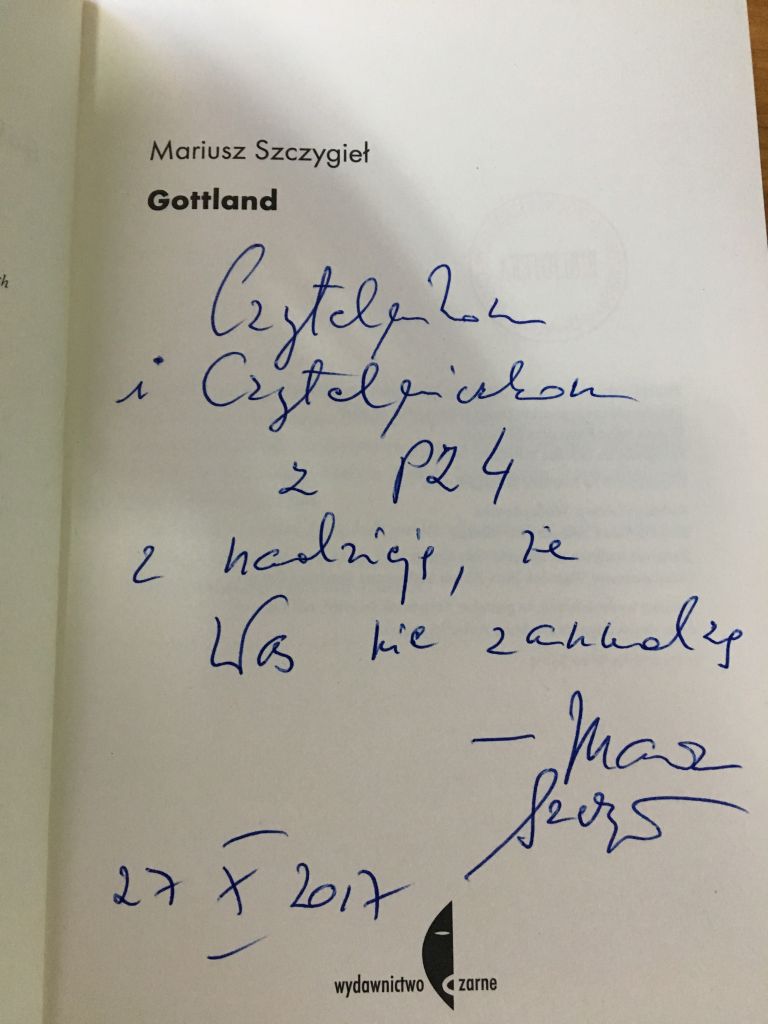 Mariusz Szczygieł
Gottland
Czytelnikom
i Czytelniczkom
z PZ4
z nadzieję, że
Was nie zanudzę
— Mariusz
Szczygieł
27 X 2017
wydawnictwo czarne